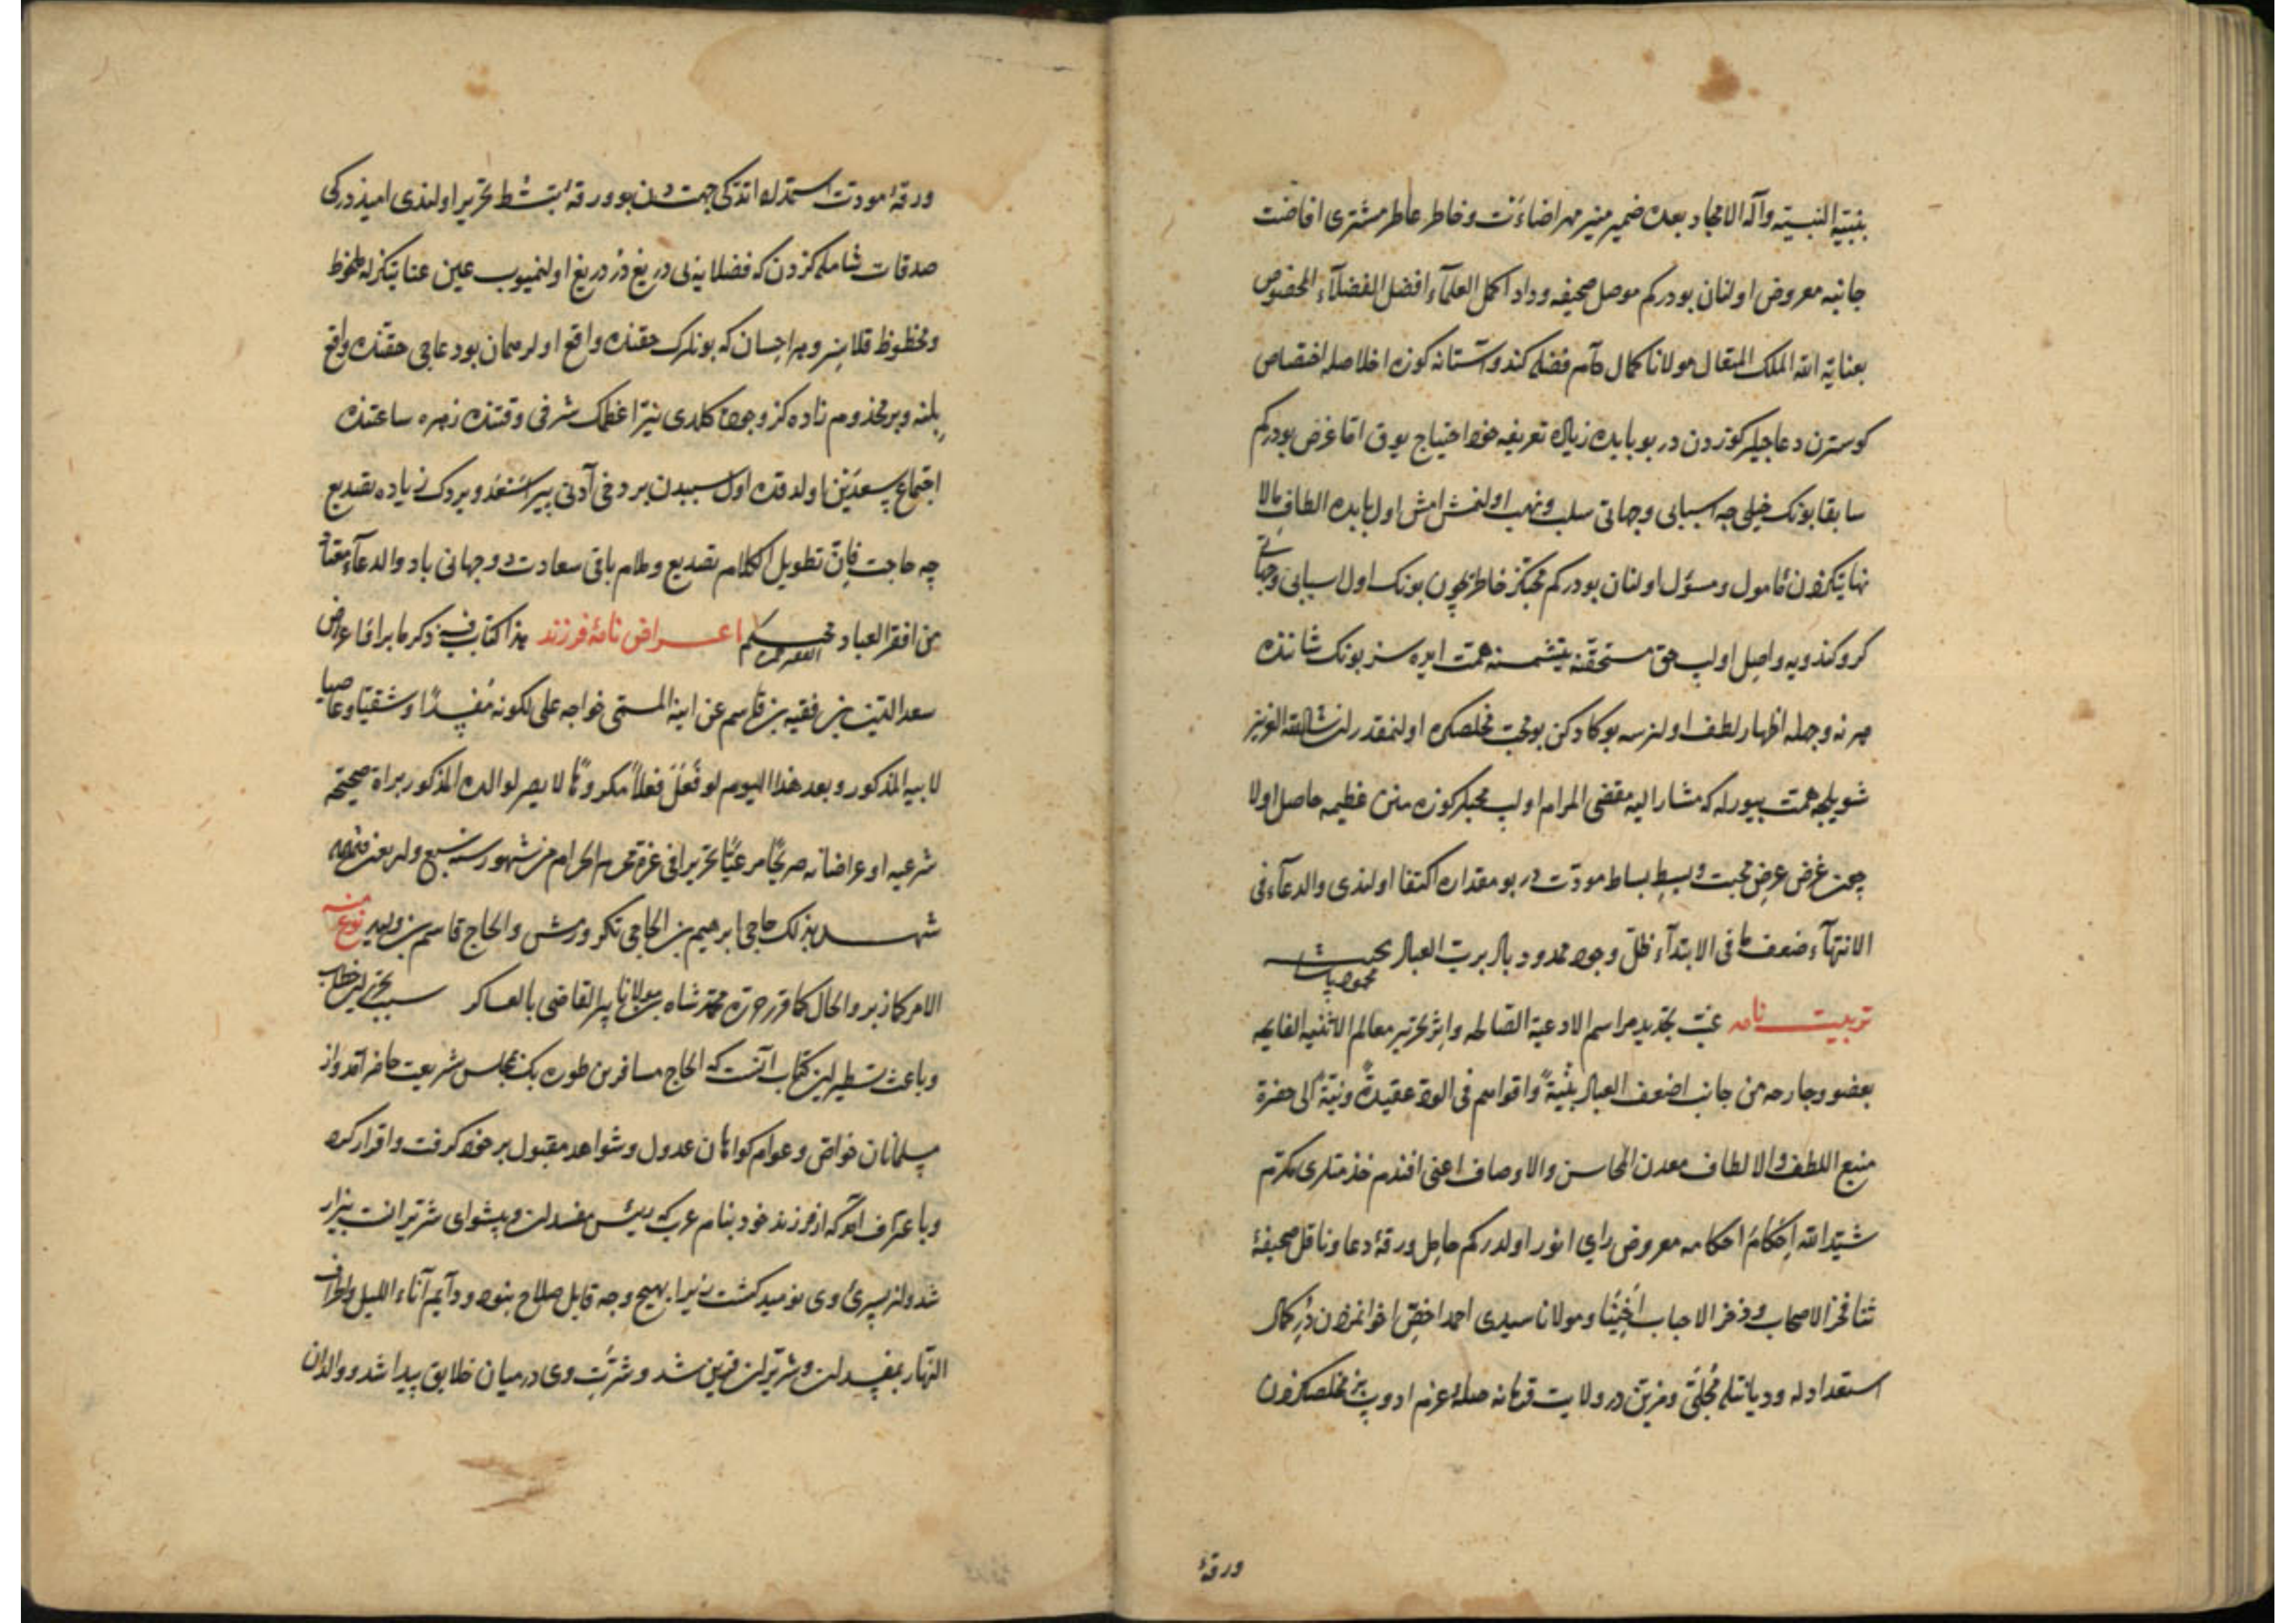 بنبيه النبيه وآله الامجاد بعده ضمير منير مهر اضاءت وخاطر عاطر مشترى افاضت
جانبه معروض اولنان بودركم موصل صحيفه وداد اكمل العلماء افضل الفضلاء المخصوص
بعناية الله الملك المتعال مولانا كمال دام فضله كندو آستانه كوزه اخلاصله اختصاص
كوسترن دعاجيلركوزدن در بو بابده زياده تعريفه خود احتياج يوق اما غرض بودركم
سابقا بونك خيلى جه اسبابى وجهاتى سلب ونهب اولنمش ايمش اول بابده الطاف بالا
نهايتكزدن مأمول ومسؤل اولنان بودركم محبكز خاطر يچون بونك اول اسبابى وجهاتى
كرو كندويه واصل اولب حق مستحقنه يتشمسنه همت ايده سز بونك شاننده
هر نه وجهله اظهار لطف اولنرسه بوكا دكن بو محب مخلصكزه اولنمقدر ان شاء الله العزيز
شويله همت بيورله كه مشار اليه مقضى المرام اولب محبلركوزه منن عظيمه حاصل اولا
چون غرض عرض محبت وبسط بساط مودت در بو مقداره اكتفا اولندى والدعاء فى
الانتهاء ضعف ما فى الابتداء ظل وجود ممدود باد برب العباد
تربيت نامه غب تجديد مراسم الادعية الصالحه واثر تحرير معالم الاثنية الفايحه
بعضو وجارحه من جانب اضعف العباد بنية واقواهم فى الود عقيدة ونية الى حضرة
منبع اللطف والالطاف معدن المحاسن والاوصاف اعنى افندم خدمتلرى مكرم
شيد الله احكام احكامه معروض راى انور اولدركم حامل ورقۀ دعا وناقل صحيفۀ
ثنا فخر الاصحاب وذخر الاحباب مولانا سيدى احمد اخص اخوانمزدن در كمال
استعدادله وديانتله محلى ومزين در ولايت صله عزم ادوب بز مخلصكزدن
ورقۀ
ورقۀ مودت استمداد اتدكى جهتدن بو ورقۀ تحرير اولندى اميذدركى
صدقات شامله كزدن كه فضلايه بى دريغ در دريغ اولنميوب عين عنايتكزله ملحوظ
ومحظوظ قلاسز وهر احسان كه بونلرك حقنده واقع اولر همان بو دعاجى حقنده واقع
بلنه وبر مخدوم زاده كز وجوده كلدى نير اعظمك شرفى وقتنده زهره ساعتنده
اجتماع سعدين اولدقده اول سببدن بر دخى آدنى پير اسعد ويردك زياده تصديع
چه حاجت فان تطويل الكلام تصديع وملام باقى سعادت دو جهانى باد والدعاء معتاد
من افقر العباد اعراض نامۀ فرزند هذا كتاب فيه ذكر ما براقا عرض
سعد الدين بن فقيه بن قاسم عن ابنه المسمى خواجه على لكونه مفسدا وشقيا وعاصيا
لابيه المذكور وبعد هذا اليوم لو فعل فعلا مكروها لا يضر لوالده المذكور براة صحيحة
شرعيه او عراضا نه صريحا مرعيا تحريرا فى غرة محرم الحرام من شهور سنه سبع واربعين
شهد بذلك حاجى ابرهيم بن الحاجى تكرورمش والحاج قاسم بن نوع منه
الامر كما زبر والحال كما قرر حرره محمد شاه بن مولانا پير القاضى بالعساكر سبب تحرير اين خطاب
وباعث تسطير اين كتاب آنست كه الحاج مسافر بن طوره بك مجلس شريعت حاضر آمد واز
مسلمانان خواص وعوام كواهان عدول وشواهد مقبول بر خود كرفت واقرار كرد
وباعتراف آمد كه از فرزند خود بنام عرب كه رئيس مفسدان وپيشواى شريران است بيزار
شد واز پسرئ وى نوميد كشت زيرا بهيچ وجه قابل صلاح نبود ودآيم آناء الليل واطراف
النهار بمفسدان وشريران قرين شد وشرت وى درميان خلايق پيدا شد ووالدان